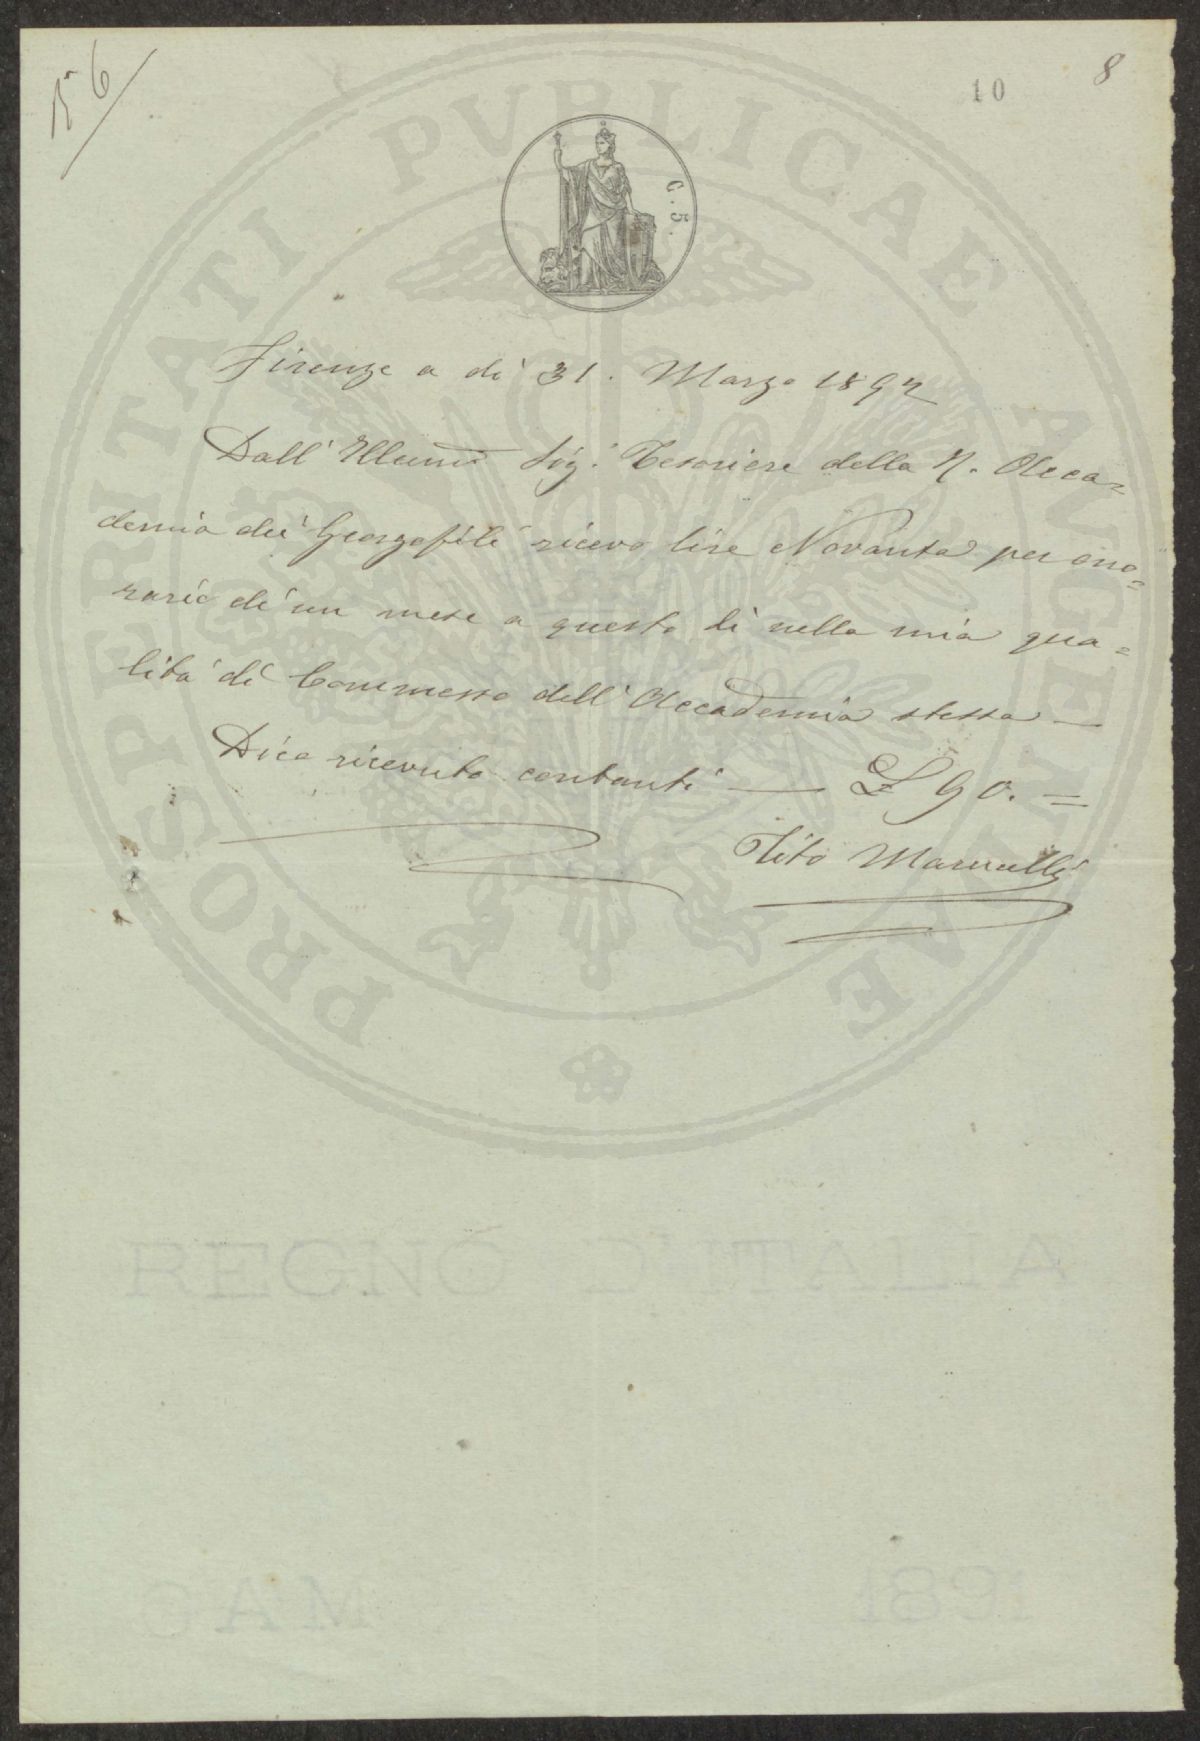 N° 6
10
8
C. 5.
PROSPERITATI PVBLICAE AVGENDAE
Firenze a dì 31. Marzo 1892
Dall' Illumo Sigr. Tesoriere della R. Acca=
demia dei Georgofili ricevo lire Novanta per ono=
rario di un mese a questo dì nella mia qua=
lità di Commesso dell' Accademia stessa —
Dico ricevuto contanti — £ 90. =
Tito Marucelli
REGNO D'ITALIA
1891